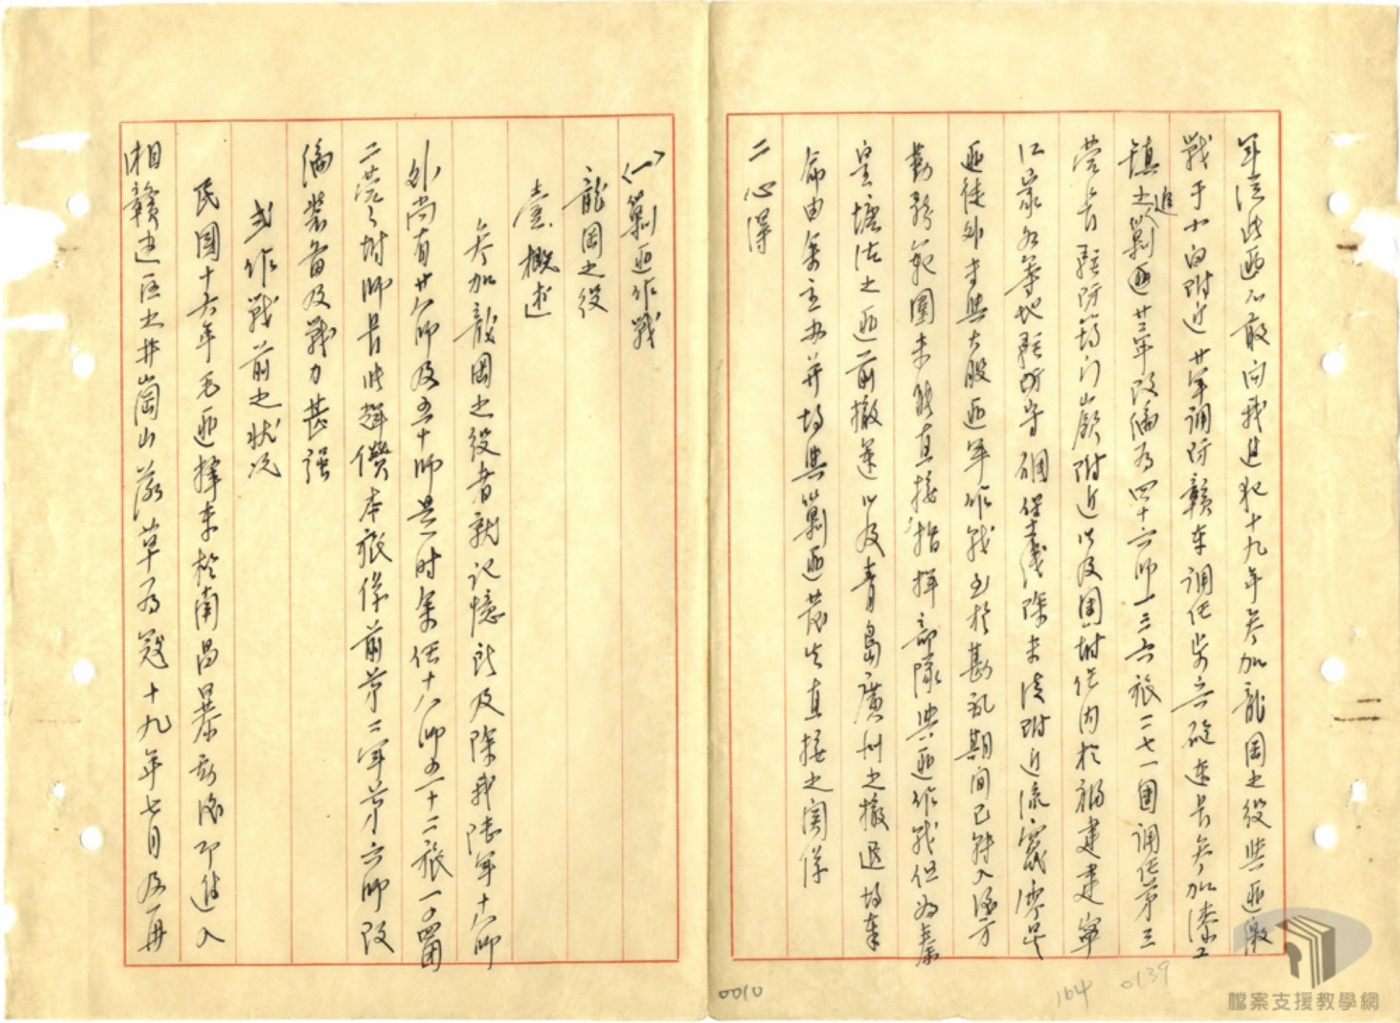 年liter此匪不敢向我進犯十九年參加龍岡之役與匪激
戰于十月附近廿年調防贛東調任步六砲連長參加漆工
鎮之進剿匪廿二年改編為四十六師一三六旅二七一團調任第三
營長駐防筠門嶺附近以及團附任內於福建建寧
江家各等地駐防守碉堡線除未淩附近流竄零星
匪徒外未與大股匪軍作戰至於戡亂期間已轉入後方
勤務範圍未能直接指揮部隊與匪作戰但為秦
皇塘沽之匪前撤運以及青島廣州之撤退均奉
命由余主辦并均與剿匪發生直接之關係
二心得
〈一〉剿匪作戰
龍岡之役
壹概述
參加龍岡之役者就記憶所及除我陸軍十八師
外尚有廿八師及五十師是時余任十八師五十二旅一〇四團
二營營附師長張輝瓚本旅係前第二軍第六師改
編裝備及戰力甚強
貳作戰前之狀況
民國十六年毛匪擇東於南昌暴動後即進入
湘贛邊區之井崗山落草為寇十九年七月及再
0010
164
0139
檔案支援教學網